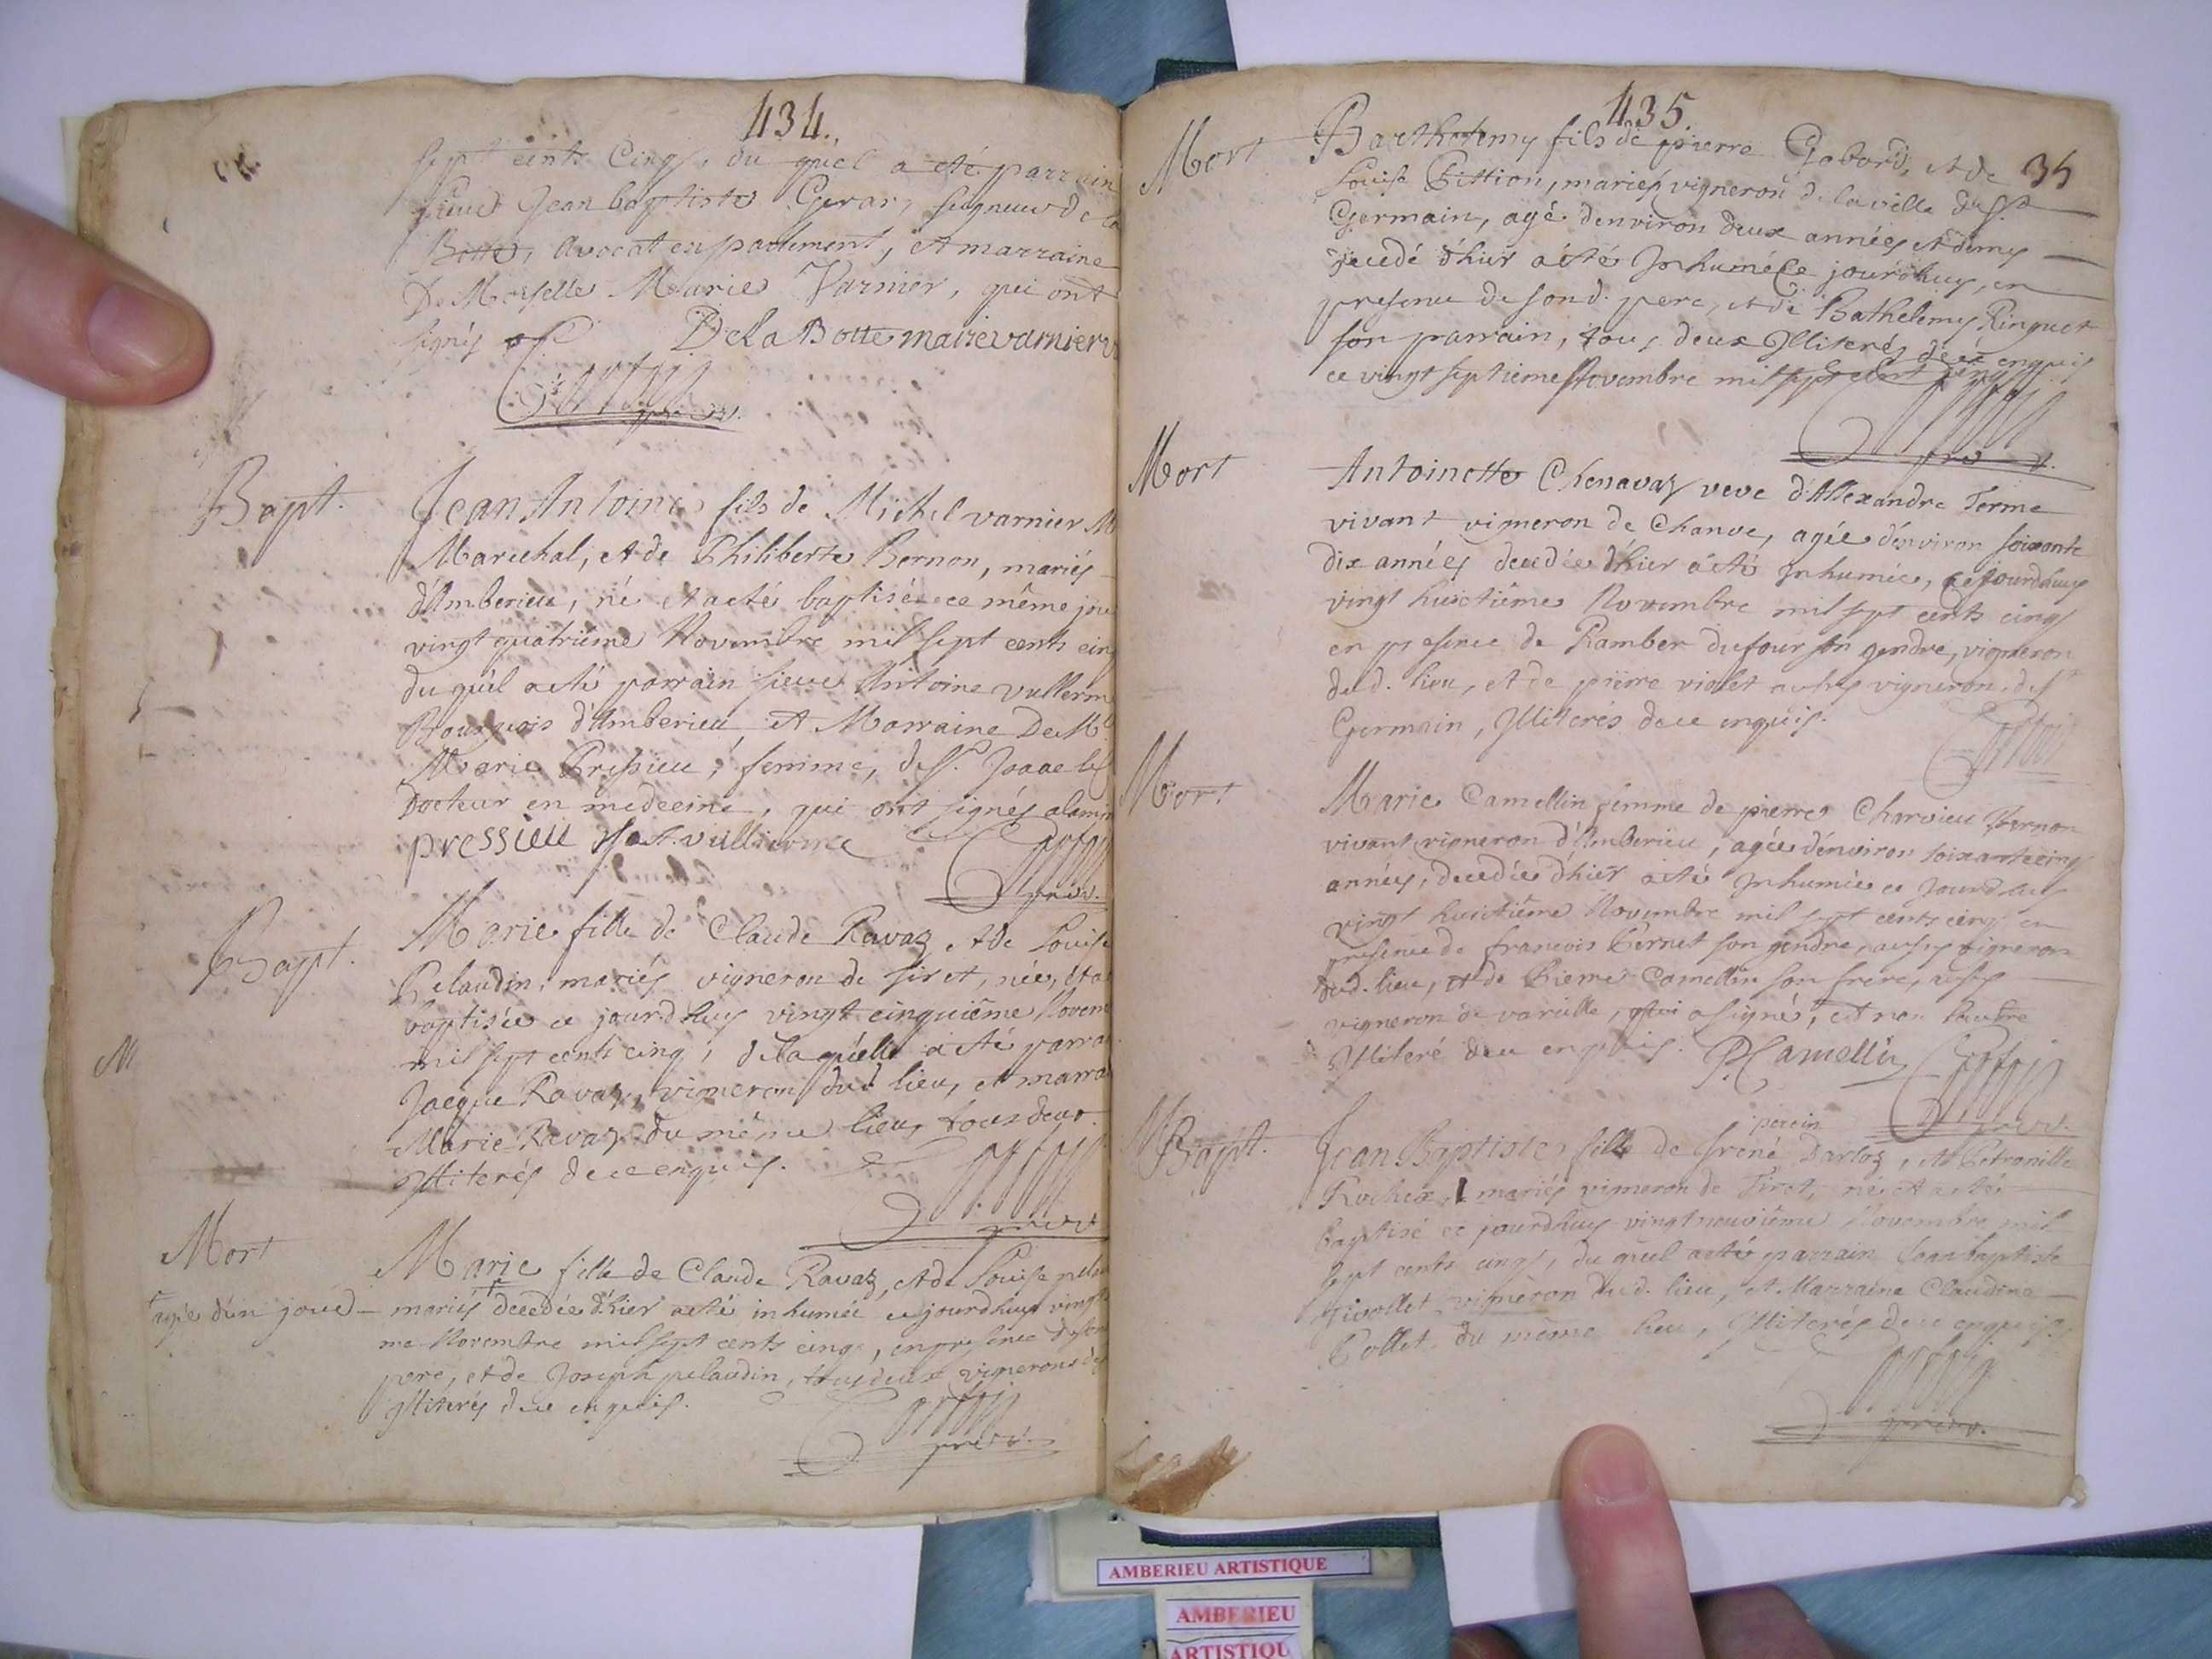 434.
sept cents Cinq, du quel a eté parrain
sieur Jean baptiste Gerar, seigneur de la
Botte, avocat en parlement, et marraine
De Moiselle Marie Varnier, qui ont
signés
De La Botte marievarnier
Bapt.
Jean Antoine fils de Michel varnier M
Marechal, et de Philiberte Bernon, mariés
d'Amberieu, né et a eté baptisé ce même jou
vingt quatriéme Novembre mil sept cents cin
du quel a eté parrain sieur Antoine vullerm
Bourgeois d'Amberieu, et Marraine De Mlle
Marie Pressieu, femme, de sr. Isaac
Docteur en medecine, qui ont signés
pressieu vulliermе
prev.
Bapt.
Marie fille de Claude Ravaz et de Louise
Pelaudin, mariés vigneron de tiret, née, et a
baptisée ce jourd'huy vingt cinquiême Novem
mil sept cents cinq, de laquelle a eté parra
M
Jacque Ravaz, vigneron dud. lieu, et marra
Marie Ravaz du même lieu, tous deux
Illiterés de ce enquis.
Mort
Marie fille de Claude Ravaz, et de Louise pelau
agée d'un jour
mariés decedée d'hier a eté inhumée ce jourdhuy vingt
me Novembre mil sept cents cinq, en presence de son
pere, et de Joseph pelaudin, tous deux vignerons de
Illiterés de ce enquis.
prev.
435.
35
Mort
Barthelemy fils de pierre Gabord, et de
Louise Pittion, mariés vigneron de la ville de st
Germain, agé d'environ deux années et demy
decedé d'hier a eté Inhumé Ce jourdhuy, en
presence de sond. pere, et de Bathelemy Ringuet
son parrain, tous deux Illiterés de ce enquis
ce vingt septieme Novembre mil sept cent cinq
Mort
Antoinette Chenavaz veve d'Allexandre Terme
vivant vigneron de Chanve, agée d'environ soixante
dix années decedée d'hier a eté Inhumée, ce jourdhuy
vingt huictiême Novembre mil sept cents cinq
en presence de Ramber dufour son gendre, vigneron
dud. lieu, et de pierre violet aussy vigneron de st
Germain, Illiterés de ce enquis.
Mort
Marie Camellin femme de pierre Charvieu Bernon
vivant vigneron d'Amberieu, agée d'environ soixante cinq
années, decedée d'hier a eté Inhumée ce Jourdhuy
vingt huictiême Novembre mil sept cents cinq en
presence de francois Pernet son gendre, aussy vigneron
dud. lieu, et de Pierre Camellin son frere, aussy
vigneron de vareille, qui a signé, et non l'autre
Illiteré de ce enquis. P. Camellin
Bapt.
percin
Jean Baptiste fils de Irené Darloz, et Petronille
Rochex, mariés vigneron de Tiret, né et a eté
baptisé ce jourdhuy vingt neuviême Novembre mil
sept cents cinq, du quel a eté parrain Jean baptiste
Tivollet vigneron dud. lieu, et Marraine Claudine
Collet du même lieu, Illiterés de ce enquis.
prev.
AMBERIEU ARTISTIQUE
AMBERIEU
ARTISTIQU